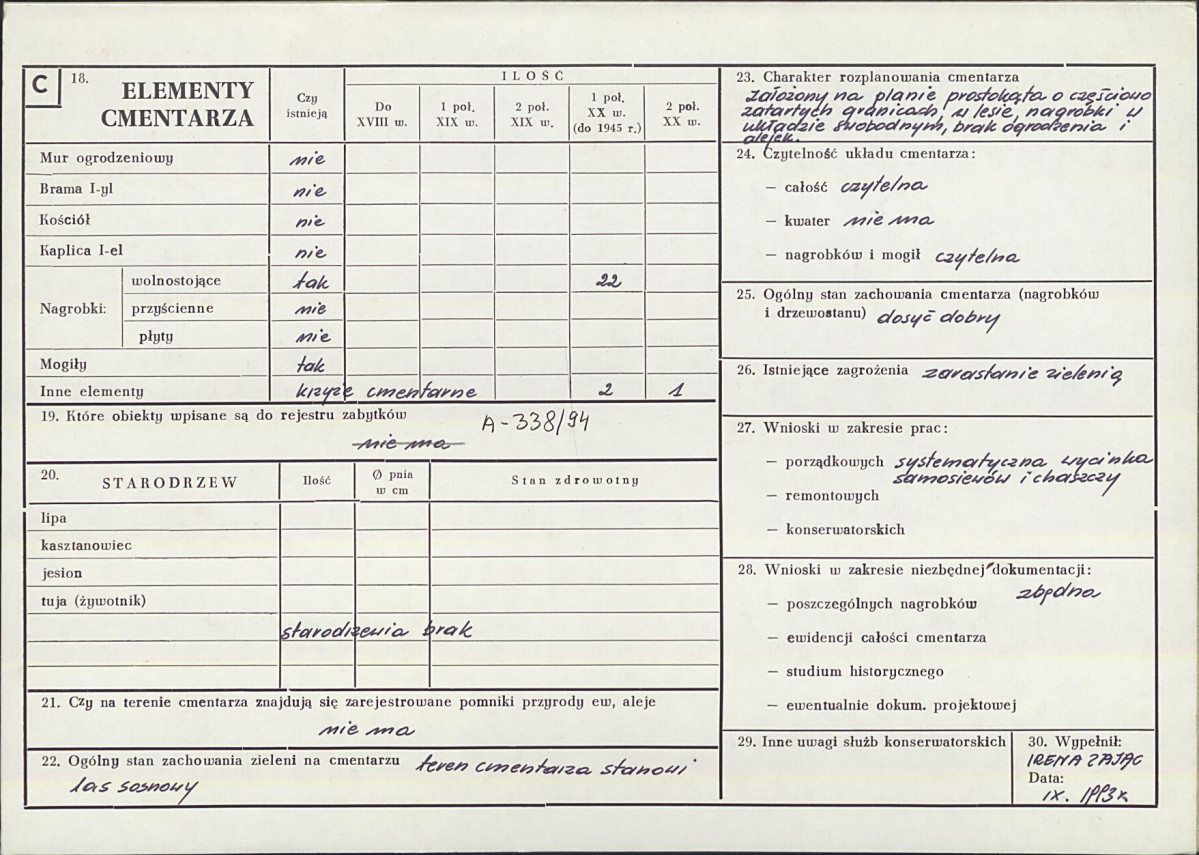 C
18.
ELEMENTY
CMENTARZA
Czy
istnieją
ILOŚĆ
Do
XVIII w.
1 poł.
XIX w.
2 poł.
XIX w.
1 poł.
XX w.
(do 1945 r.)
2 poł.
XX w.
Mur ogrodzeniowy nie
Brama I-yl nie
Kościół nie
Kaplica I-el nie
Nagrobki:
wolnostojące tak 22
przyścienne nie
płyty nie
Mogiły tak
Inne elementy krzyże cmentarne 2 1
19. Które obiekty wpisane są do rejestru zabytków A-338/94
nie ma
20. STARODRZEW
Ilość
Ø pnia
w cm
Stan zdrowotny
lipa
kasztanowiec
jesion
tuja (żywotnik)
starodrzewia brak
21. Czy na terenie cmentarza znajdują się zarejestrowane pomniki przyrody ew, aleje
nie ma
22. Ogólny stan zachowania zieleni na cmentarzu teren cmentarza stanowi
las sosnowy
23. Charakter rozplanowania cmentarza
założony na planie prostokąta o częściowo
zatartych granicach, w lesie, nagrobki w
układzie swobodnym, brak ogrodzenia i
alejek.
24. Czytelność układu cmentarza:
— całość czytelna
— kwater nie ma
— nagrobków i mogił czytelna
25. Ogólny stan zachowania cmentarza (nagrobków
i drzewostanu) dosyć dobry
26. Istniejące zagrożenia zarastanie zielenią
27. Wnioski w zakresie prac:
— porządkowych systematyczna wycinka
samosiewów i chaszczy
— remontowych
— konserwatorskich
28. Wnioski w zakresie niezbędnej dokumentacji:
zbędna
— poszczególnych nagrobków
— ewidencji całości cmentarza
— studium historycznego
— ewentualnie dokum. projektowej
29. Inne uwagi służb konserwatorskich
30. Wypełnił:
IRENA ZAJĄC
Data:
IX. 1993r.